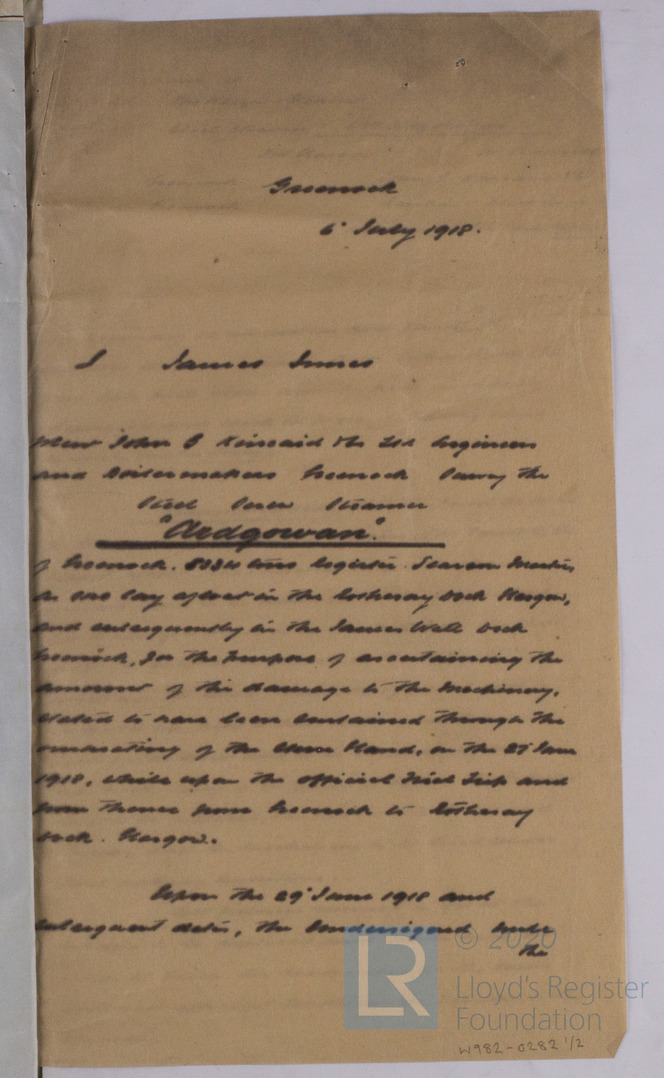 Greenock
6 July 1918.
I James Innes
John G Kincaid & Co Ltd Engineers
and Boilermakers Greenock Survey the
Steel Screw Steamer
"Ardgowan".
of Greenock. tons Register.
as she lay afloat in the Rothesay Dock Glasgow,
and subsequently in the James Watt Dock
Greenock, for the purpose of ascertaining the
amount of the damage to the Machinery,
stated to have been sustained through the
overheating of the Stern Gland, on the 27 June
1918, while upon the official Trial Trip and
from thence from Greenock to Rothesay
Dock. Glasgow.
Upon the 29 June 1918 and
subsequent dates, the Undersigned
the
© 2020
LR
Lloyd's Register
Foundation
W982-0282 1/2